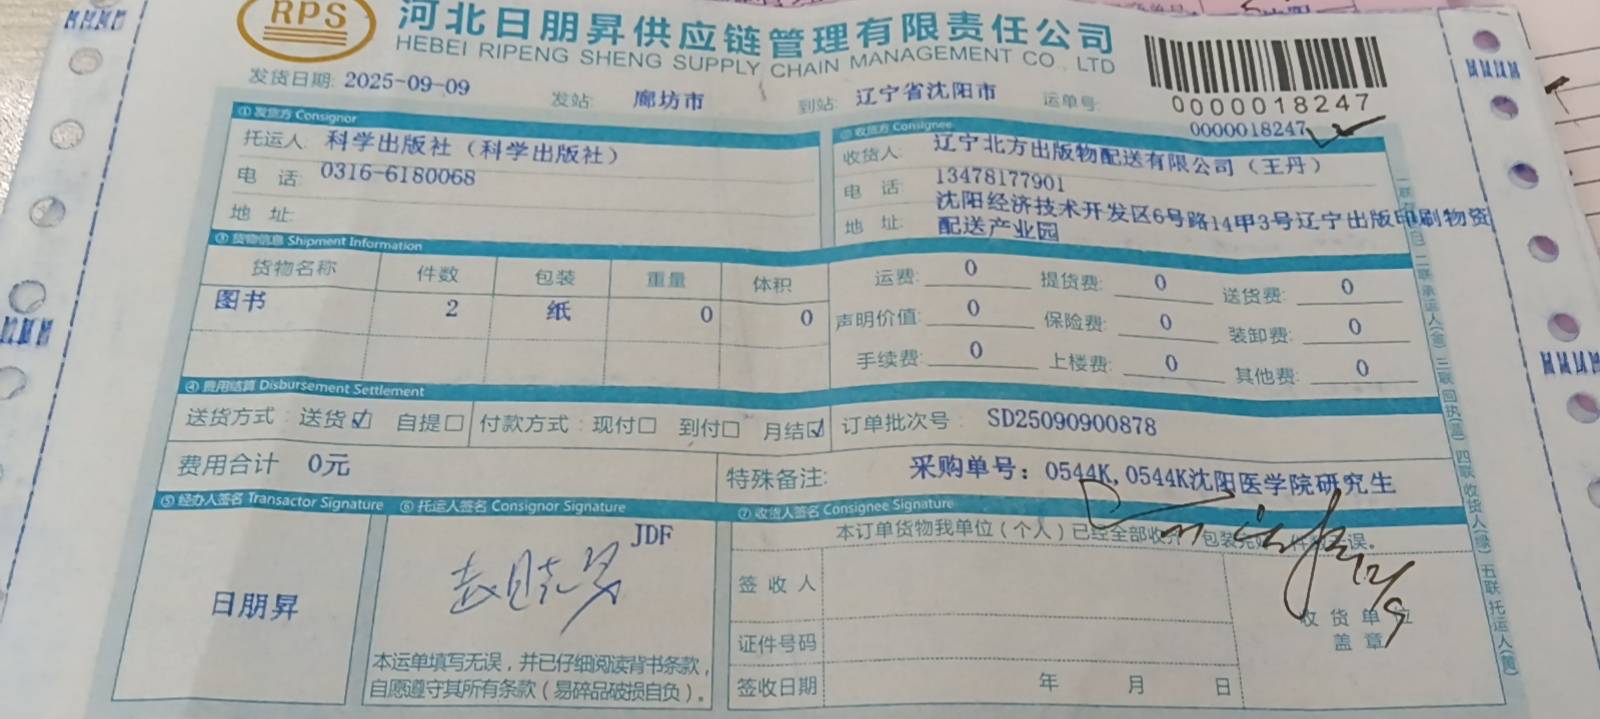 RPS
河北日朋昇供应链管理有限责任公司
HEBEI RIPENG SHENG SUPPLY CHAIN MANAGEMENT CO., LTD
发货日期: 2025-09-09 发站: 廊坊市 到站: 辽宁省沈阳市 运单号:
0000018247
0000018247
① 发货方 Consignor
托运人: 科学出版社（科学出版社）
电 话: 0316-6180068
地 址:
② 收货方 Consignee
收货人: 辽宁北方出版物配送有限公司（王丹）
电 话: 13478177901
地 址: 沈阳经济技术开发区6号路14甲3号辽宁出版印刷物资
配送产业园
③ 货物信息 Shipment Information
货物名称 件数 包装 重量 体积
图书 2 纸 0 0
运费: 0 提货费: 0 送货费: 0
声明价值: 0 保险费: 0 装卸费: 0
手续费: 0 上楼费: 0 其他费: 0
④ 费用结算 Disbursement Settlement
送货方式: 送货☑ 自提☐ 付款方式: 现付☐ 到付☐ 月结☑ 订单批次号: SD25090900878
费用合计 0元
特殊备注: 采购单号: 0544K,0544K沈阳医学院研究生
⑤ 经办人签名 Transactor Signature
日朋昇
⑥ 托运人签名 Consignor Signature
JDF
本运单填写无误，并已仔细阅读背书条款，
自愿遵守其所有条款（易碎品破损自负）。
⑦ 收货人签名 Consignee Signature
本订单货物我单位（个人）已经全部收 包装完 件 误。
签 收 人
证件号码
签收日期 年 月 日
12/9
收 货 单 位
盖 章
二联承运人(金) 三联回执(蓝) 四联收货人(绿) 五联托运人(黄)